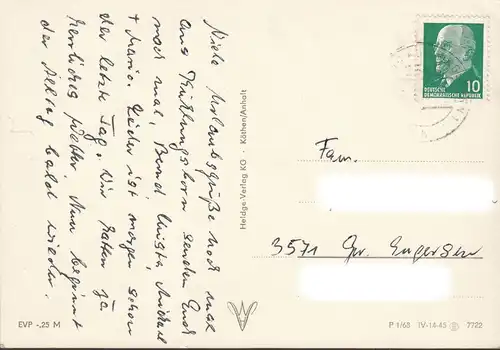 Viele Urlaubsgrüße noch mal
aus Frühlingsborn senden Euch
noch mal, Bernd, Christa, Michael
+ Mario. Leider ist morgen schon
der letzte Tag. Wir hatten ja
herrliches Wetter. Nun beginnt
der Alltag bald wieder.
Heldge-Verlag KO · Köthen/Anhalt
10
DEUTSCHE
DEMOKRATISCHE REPUBLIK
Fam.
3571 Gr. Engersen
EVP -,25 M
P 1/68 IV-14-45 7722